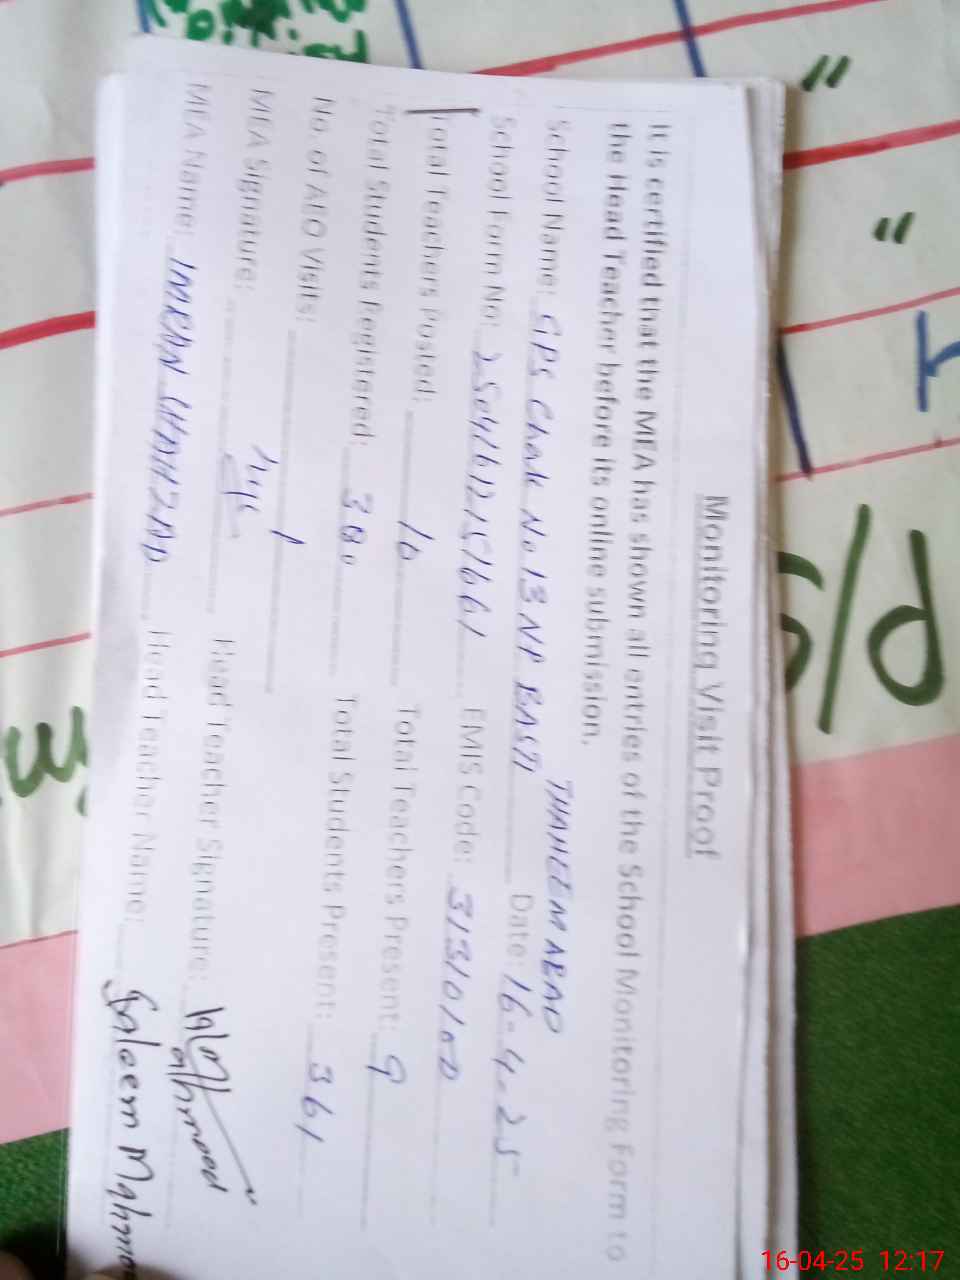 Monitoring Visit Proof
It is certified that the MEA has shown all entries of the School Monitoring Form to
the Head Teacher before its online submission.
THAHEEM ABAD
School Name: GPS Chak No. 13 NP BASTI Date: 16-4-25
School Form No: EMIS Code: 31310100
Total Teachers Posted: 10 Total Teachers Present: 9
Total Students Registered: 380 Total Students Present: 361
No. of AEO Visits: 1
MEA Signature: Head Teacher Signature:
MEA Name: IMRAN SHAHZAD Head Teacher Name: Saleem Mahmo
P/S
16-04-25 12:17